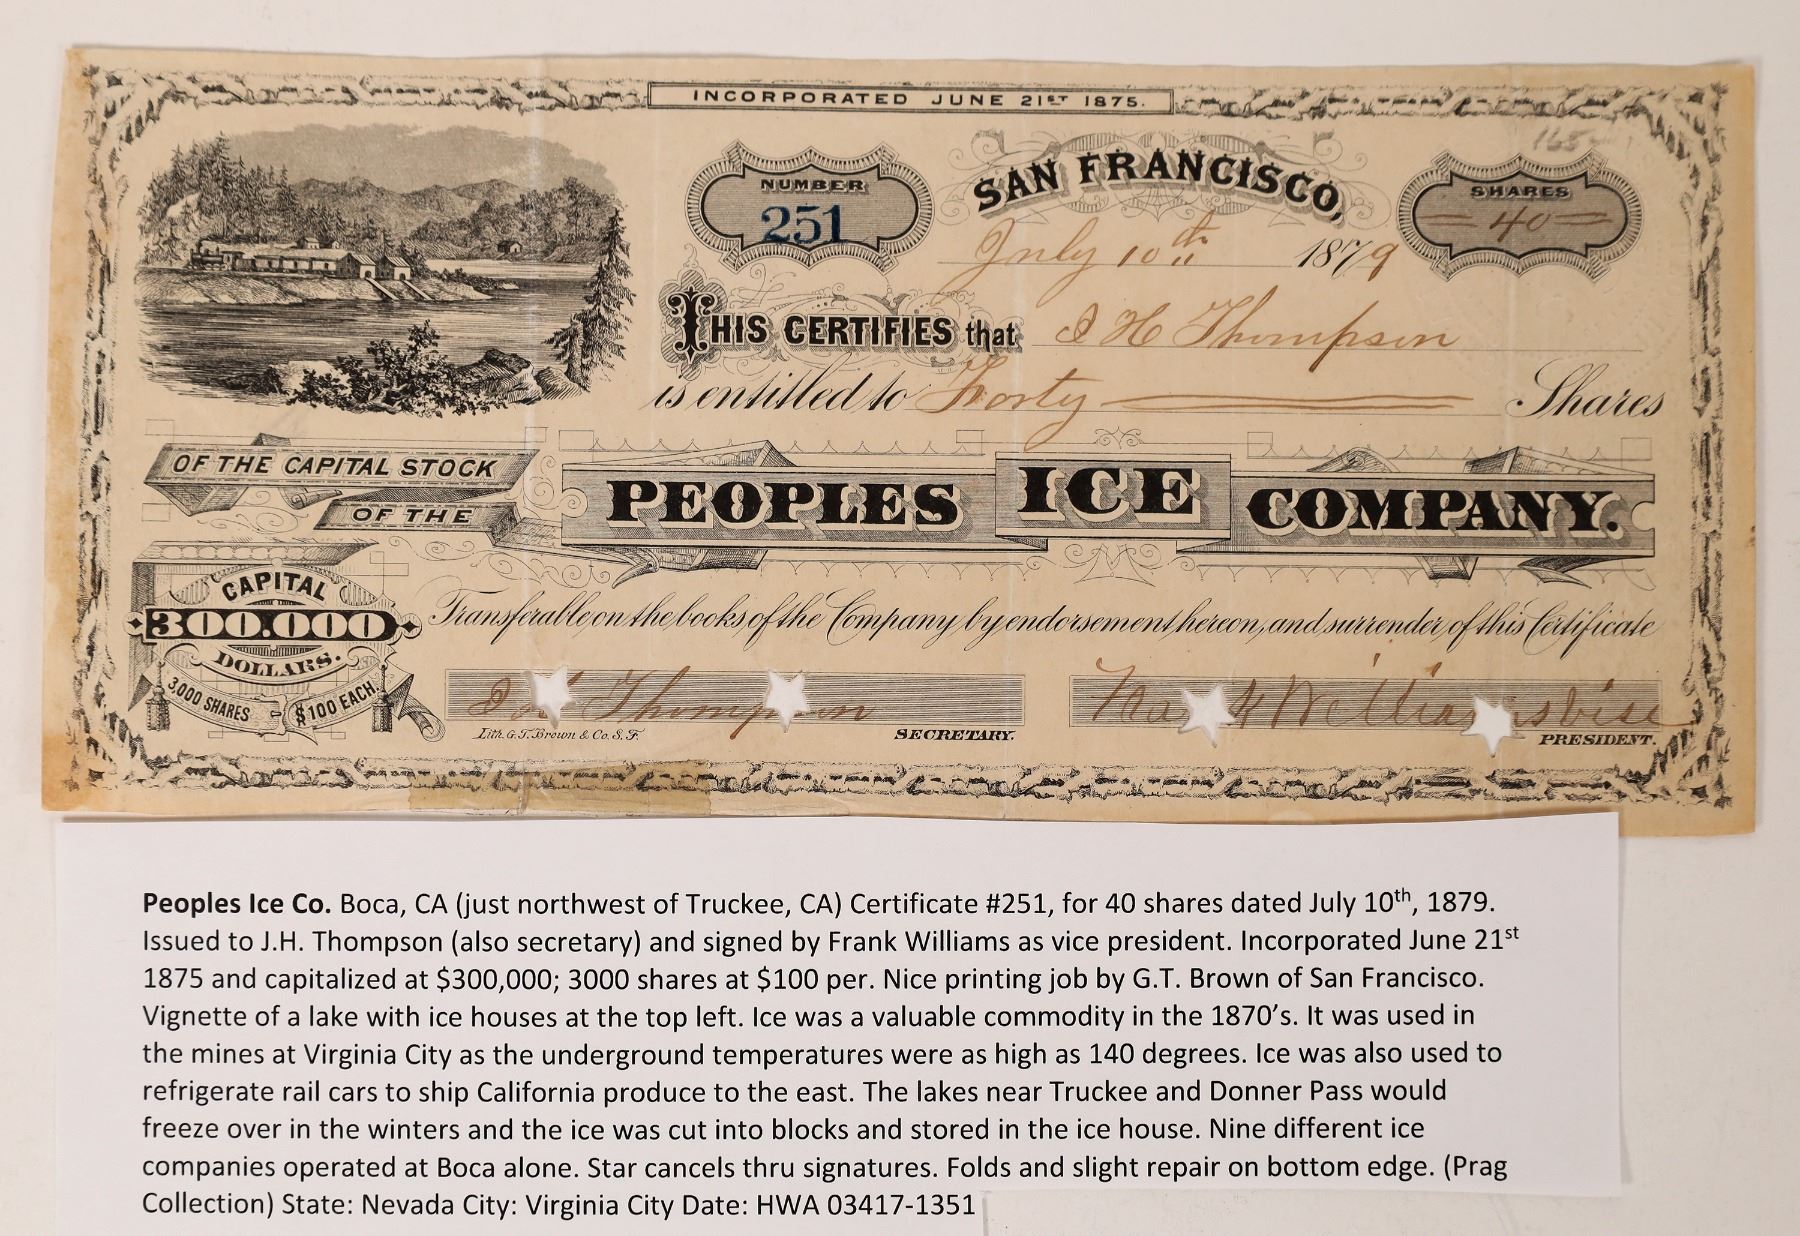 INCORPORATED JUNE 21ST 1875.
165
NUMBER
251
SAN FRANCISCO,
July 10th 1879
SHARES
40
THIS CERTIFIES that J H Thompson
is entitled to Forty Shares
OF THE CAPITAL STOCK
OF THE
PEOPLES ICE COMPANY.
CAPITAL
300.000
DOLLARS.
3,000 SHARES $100 EACH.
Transferable on the books of the Company by endorsement hereon, and surrender of this Certificate
Thompson
Lith. G.T. Brown & Co. S.F.
SECRETARY.
Frank Williams vice
PRESIDENT.
Peoples Ice Co. Boca, CA (just northwest of Truckee, CA) Certificate #251, for 40 shares dated July 10th, 1879.
Issued to J.H. Thompson (also secretary) and signed by Frank Williams as vice president. Incorporated June 21st
1875 and capitalized at $300,000; 3000 shares at $100 per. Nice printing job by G.T. Brown of San Francisco.
Vignette of a lake with ice houses at the top left. Ice was a valuable commodity in the 1870's. It was used in
the mines at Virginia City as the underground temperatures were as high as 140 degrees. Ice was also used to
refrigerate rail cars to ship California produce to the east. The lakes near Truckee and Donner Pass would
freeze over in the winters and the ice was cut into blocks and stored in the ice house. Nine different ice
companies operated at Boca alone. Star cancels thru signatures. Folds and slight repair on bottom edge. (Prag
Collection) State: Nevada City: Virginia City Date: HWA 03417-1351